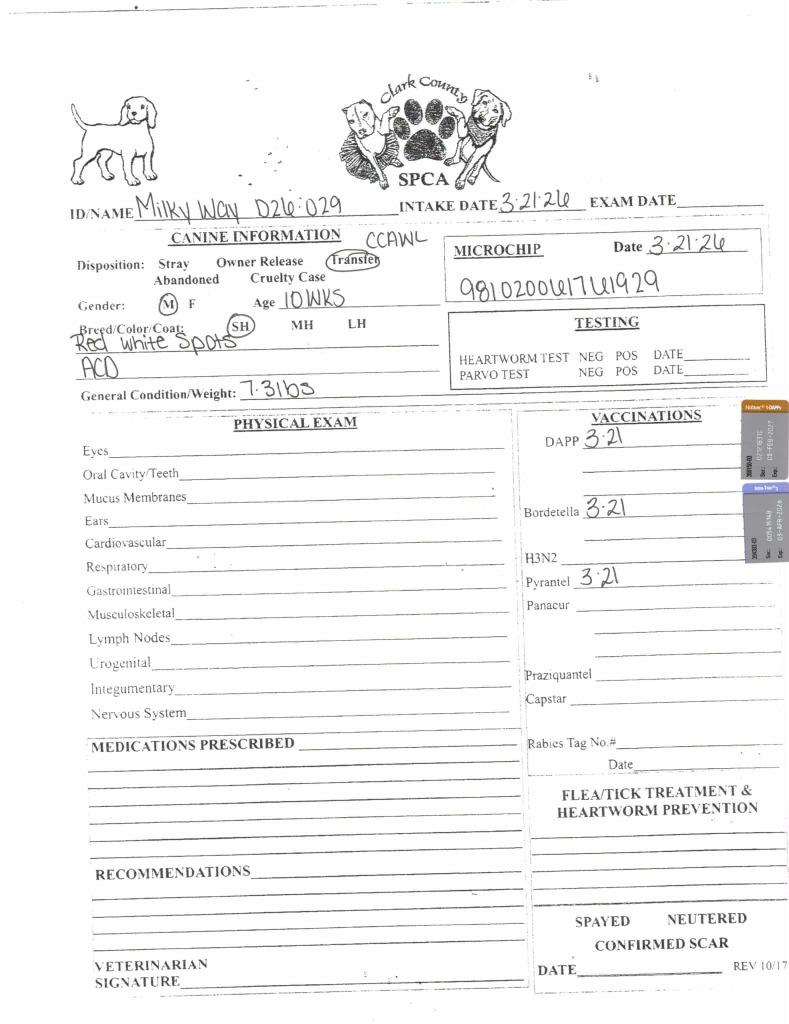 Clark County
SPCA
ID/NAME Milky Way D26-029 INTAKE DATE 3-21-26 EXAM DATE
CANINE INFORMATION CCAWL
Disposition: Stray Owner Release Transfer
Abandoned Cruelty Case
Gender: M F Age 10 WKS
Breed/Color/Coat: SH MH LH
Red White Spots
ACD
General Condition/Weight: 7.31bs
MICROCHIP Date 3-21-26
981020061761929
TESTING
HEARTWORM TEST NEG POS DATE
PARVO TEST NEG POS DATE
PHYSICAL EXAM
Eyes
Oral Cavity/Teeth
Mucus Membranes
Ears
Cardiovascular
Respiratory
Gastrointestinal
Musculoskeletal
Lymph Nodes
Urogenital
Integumentary
Nervous System
MEDICATIONS PRESCRIBED
RECOMMENDATIONS
VETERINARIAN
SIGNATURE
VACCINATIONS
DAPP 3-21
Bordetella 3-21
H3N2
Pyrantel 3-21
Panacur
Praziquantel
Capstar
Rabies Tag No.#
Date
FLEA/TICK TREATMENT &
HEARTWORM PREVENTION
SPAYED NEUTERED
CONFIRMED SCAR
DATE REV 10/17